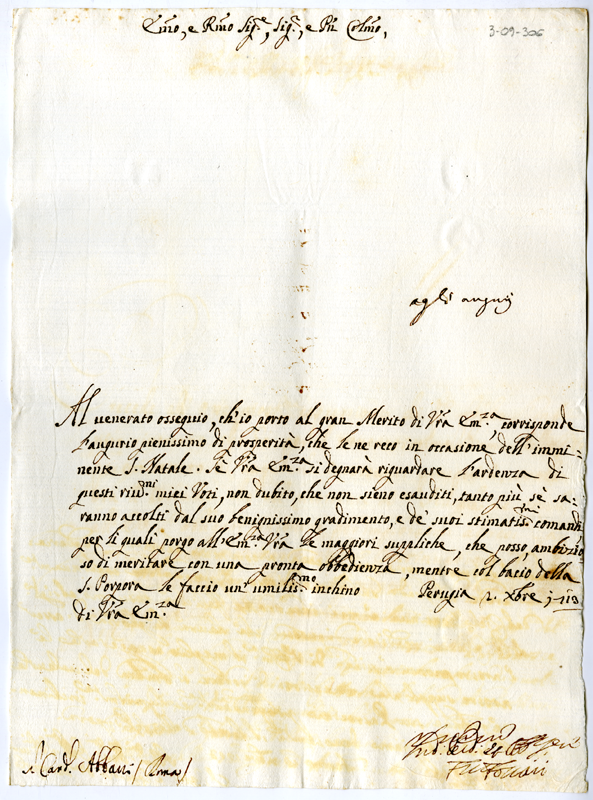 Emo, e Rmo Sig.re, Sig.r, e Pn Colmo,
3-09-306
agli augurij
Al venerato ossequio, ch'io porto al gran Merito di Vrã Em.za, corrisponde
l'augurio pienissimo di prosperità, che le ne reco in occasione dell'immi=
nente S. Natale. Se Vrã Em.za si degnarà riguardare l'ardenza di
questi riv.mi miei Voti, non dubito, che non sieno esauditi, tanto più se sa=
ranno ascolti dal suo benignissimo gradimento, e de' suoi stimatiss.mi comandi
per li quali porgo all'Em.za Vrã le maggiori suppliche, che posso, ambizio
so di meritare con una pronta obbedienza, mentre col bacio della
S. Porpora le faccio un umiliss.mo inchino Perugia 2. Xbre
di Vrã Em.za
S.r Card. Albani (Roma)